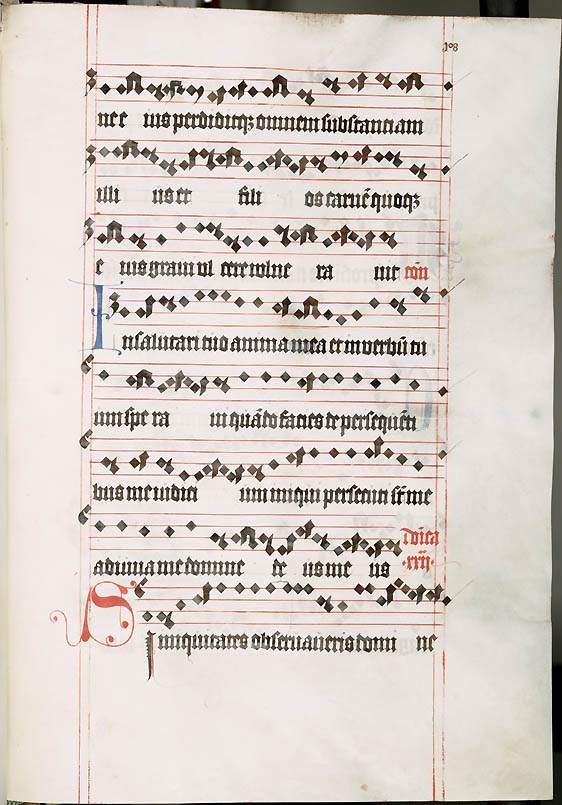 108
ne e ius perdiditqʒ omnem substantiam
illi us et fili os carnē quoqʒ
e ius graui ul cere vulne ra uit cōn
In salutari tuo anima mea et in verbū tu
um spe ra ui quādo facies de persequēti
bus me iudici um iniqui persecuti sūt me
adiuua me domine de us me us
Dn̄ica
·xxij·
Si iniquitates obseruaueris domi ne